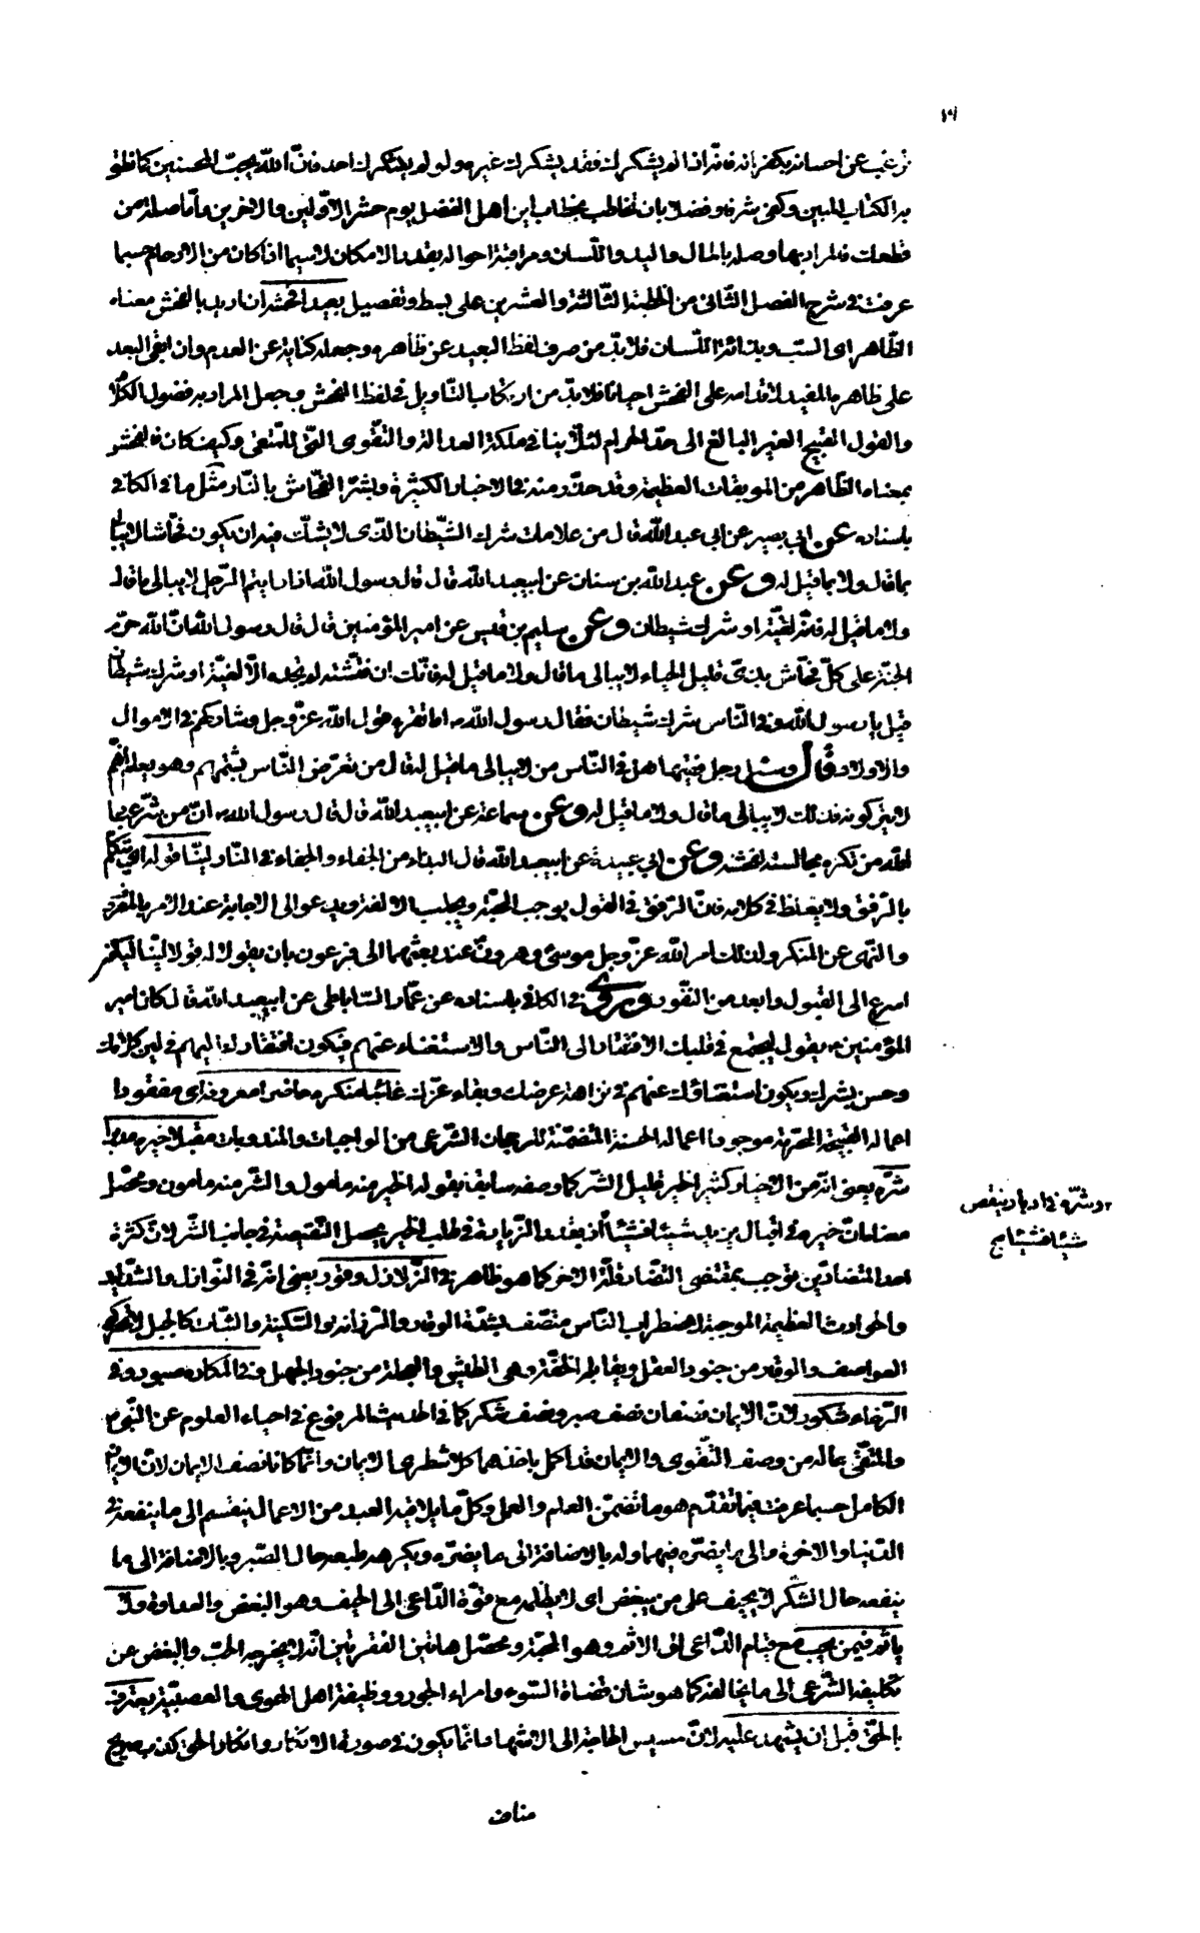 ترغب عن احسانه بكفرانه فانه اذا لم يشكرك فقد يشكرك غيره ولو لم يشكرك احد فانّ اللّه يحبّ المحسنين كما نطق
به الكتاب المبين وكفى شرفا وفضلا بان تخاطب بخطاب اين اهل الفضل يوم حشر الاوّلين والاخرين وامّا صلة من
قطعك فالمراد بها وصله بالمال واليد واللّسان ومراقبة احواله بقدر الامكان لاسيما اذا كان من الارحام حسبما
عرفت فى شرح الفصل الثّانى من الخطبة الثّالثة والعشرين على بسط وتفصيل بعيدا فحشه ان اريد بالفحش معناه
الظّاهر اى السّب وبذائة اللّسان فلابدّ من صرف لفظ البعيد عن ظاهره وجعله كناية عن العدم وان ابقى البعد
على ظاهره المفيد لاقدامه على الفحش احيانا فلابدّ من ارتكاب التّاويل فى لفظ الفحش وجعل المراد به فضول الكلام
والقول القبيح الغير البالغ الى حدّ الحرام لئلّا ينافى ملكة العدالة والتّقوى الّتى للمتّقى وكيف كان فالفحش
بمعناه الظّاهر من الموبقات العظيمة وقد حذّر منه فى الاخبار الكثيرة وبشّر الفحّاش بالنّار مثل ما فى الكافى
باسناده عن ابى بصير عن ابى عبد اللّه قال من علامات شرك الشّيطان الّذى لا يشكّ فيه ان يكون فحّاشا لا يبالى
بما قال ولا بما قيل له وعن عبد اللّه بن سنان عن ابيعبد اللّه قال قال رسول اللّه اذا رايتم الرّجل لا يبالى ما قال
ولا ما قيل له فانّه لغيّة او شرك شيطان وعن سليم بن قيس عن امير المؤمنين قال قال رسول اللّه انّ اللّه حرّم
الجنّة على كلّ فحّاش بذىّ قليل الحياء لا يبالى ما قال ولا ما قيل له فانّك ان فتّشته لم تجده الّا لغيّة او شرك شيطان
قيل يا رسول اللّه وفى النّاس شرك شيطان فقال رسول اللّه اما تقرء قول اللّه عزّ وجل وشاركهم فى الاموال
والاولاد قال وسئل رجل فقيها هل فى النّاس من لا يبالى ما قيل له قال من تعرّض النّاس يشتمهم وهو يعلم انّهم
لا يتركونه فذلك لا يبالى ما قال ولا ما قيل له وعن سماعة عن ابيعبد اللّه قال قال رسول اللّه انّ من شرّ عباد
اللّه من تكره مجالسته لفحشه وعن ابى عبيدة عن ابيعبد اللّه قال البذاء من الجفاء والجفاء فى النّار ليّنا قوله اى يتكلّم
بالرّفق ولا يغلظ فى كلامه فانّ الرّفق فى القول يوجب المحبّة ويجلب الالفة ويدعو الى الاجابة عند الامر بالمعروف
والنّهى عن المنكر ولذلك امر اللّه عزّ وجل موسى وهرون عند بعثهما الى فرعون بان يقولا له قولا ليّنا ليكون
اسرع الى القبول وابعد من النّفور وروى فى الكافى باسناده عن عمّار السّاباطى عن ابيعبد اللّه قال كان امير
المؤمنين يقول ليجتمع فى قلبك الافتقار الى النّاس والاستغناء عنهم فيكون افتقارك اليهم فى لين كلامك
وحسن بشرك ويكون استغناؤك عنهم فى نزاهة عرضك وبقاء عزّك غائبا منكره حاضرا معروفه اى مفقودا
اعماله القبيحة المحرّمة موجودا اعماله الحسنة المتضمّنة للرجحان الشّرعى من الواجبات والمندوبات مقبلا خيره مدبرا
شرّه يعنى انّه من الاخيار كثير الخير قليل الشّر كما وصفه سابقا بقوله الخير منه مامول والشّر منه مامون ومحصّل
معناه انّ خيره فى اقبال يزيد شيئا فشيئا اذ بقدر الزّيادة فى طلب الخير يحصل النّقيصة فى جانب الشّر لانّ كثرة
وشرّه فى ادبار ينقص
شيئا فشيئا صح
احد المتضادّين توجب بمقتضى التّضاد قلّة الاخر كما هو ظاهر فى الزّلازل وقور يعنى انّه فى النّوازل والشّدايد
والحوادث العظيمة الموجبة لاضطراب النّاس متّصف بشدّة الوقار والرّزانة والسّكينة والثّبات كالجبل لا تحرّكه
العواصف والوقار من جنود العقل ويقابله الخفّة وهى الطّيش والعجلة من جنود الجهل وفى المكاره صبور وفى
الرّخاء شكور لانّ الايمان نصفان نصف صبر ونصف شكر كما فى الحديث المرفوع فى احياء العلوم عن النّبى
والمتّقى بما له من وصف التّقوى والايمان قد اكمل باخذهما كلا شطرى الايمان وانّما كانا نصف الايمان لانّ الايمان
الكامل حسبما عرفت فيما تقدّم هو ما تضمّن العلم والعمل وكلّ ما يلاقيه العبد من الاعمال ينقسم الى ما ينفعه فى
الدّنيا والاخرة والى ما يضرّه فيهما وله بالاضافة الى ما يضرّه ويكرهه طبعه حال الصّبر وبالاضافة الى ما
ينفعه حال الشكر لا يحيف على من يبغض اى لا يظلمه مع قوّة الدّاعى الى الحيف وهو البغض والعداوة ولا
ياثم فيمن يحبّ مع قيام الدّاعى الى الاثم وهو المحبّة ومحصّل هاتين الفقرتين انّه لا يخرجه الحبّ والبغض عن
تكليفه الشّرعى الى ما يخالفه كما هو شان قضاة السّوء وامراء الجور ووظيفة اهل الهوى والعصبيّة يعترف
بالحقّ قبل ان يشهد عليه لانّ مسيس الحاجة الى الاشهاد انّما يكون فى صورة الانكار وانكار الحق كذب صريح
مناف